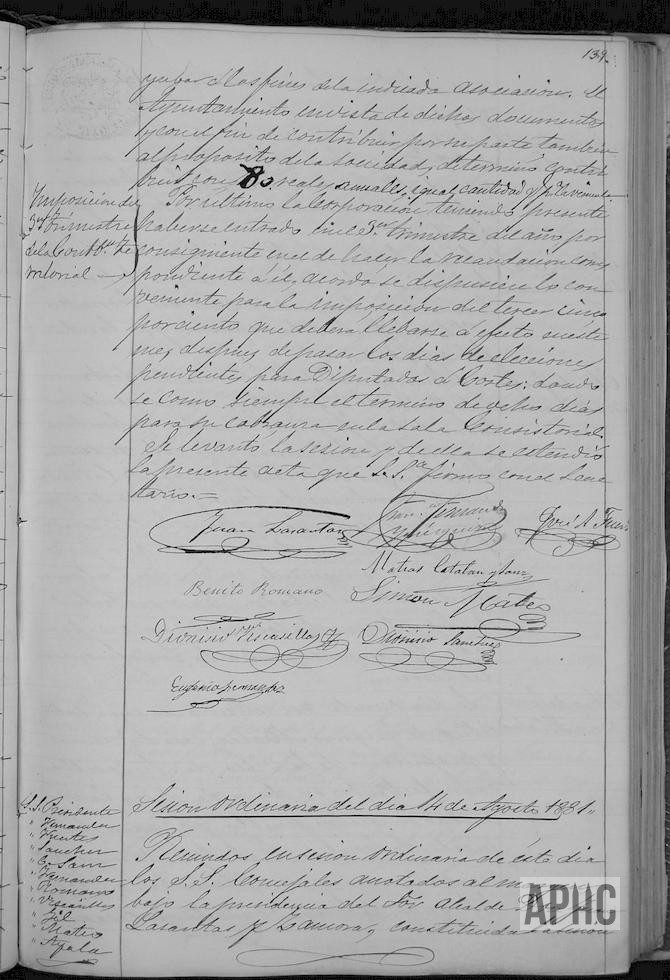 139.
yubar á los fines de la indicada asociacion. El
Ayuntamiento en vista de dichos documentos
y con el fin de contribuir por su parte tambien
al proposito de la sociedad, determinó contri
buir con 80 reales anuales, igual cantidad
Imposicion del
3er trimestre
de la Contbn. Te
rritorial
Por ultimo la Corporacion teniendo presente
haberse entrado en el 3er trimestre del año por
consiguiente en el de hacer la recaudacion corres
pondiente á él, acordó se dispusiese lo con
veniente para la imposicion del tercer cinco
por ciento que debera llebarse á efecto en este
mes, despues de pasar los dias de elecciones
pendientes para Diputados á Cortes: dando
se como siempre el termino de ocho dias
para su cobranza en la Sala Consistorial.
Se levantó la sesion y de ella se estendió
la presente acta que S.S. firmó con el Secre
tario.=
Juan Lasantas
Fernandez
José A. Fuentes
Matias Catalan y Sanz
Benito Romano
Simon Mateo
Dionisio Viscasillas
Dionisio Sanchez
Eugenio Fernandez
S.S. Presidente
" Fernandez
" Fuentes
" Sanchez
" C. Sanz
" Fernandez
" Romano
" Viscasillas
" Gil
" Mateo
" Ayala
Sesion ordinaria del dia 14 de Agosto 1881.
Reunidos en sesion ordinaria de este dia
los S.S. Concejales anotados al
bajo la presidencia del Sor. Alcalde
Lasantas y Zamora, y constituida la sesion
APHC